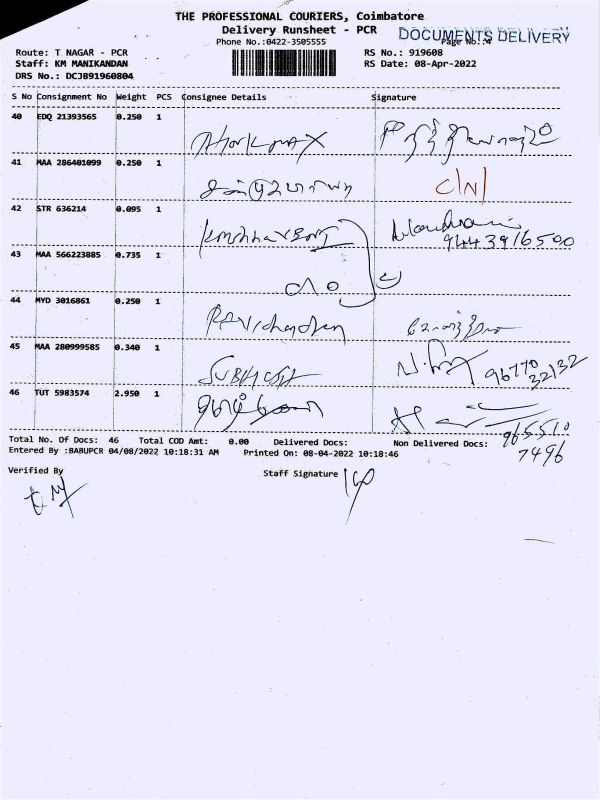 THE PROFESSIONAL COURIERS, Coimbatore
Delivery Runsheet - PCR
DOCUMENTS DELIVERY
Phone No.:0422-3505555
Page No.:4
Route: T NAGAR - PCR
RS No.: 919608
Staff: KM MANIKANDAN
RS Date: 08-Apr-2022
DRS No.: DCJB91960804
S No Consignment No Weight PCS Consignee Details Signature
40 EDQ 21393565 0.250 1
41 MAA 286401099 0.250 1 C/N/
42 STR 636214 0.095 1
9443916500
43 MAA 566223885 0.735 1
44 MYD 3016861 0.250 1
45 MAA 280999585 0.340 1 SUBHASH
96770
32132
46 TUT 5983574 2.950 1
Total No. Of Docs: 46 Total COD Amt: 0.00 Delivered Docs: Non Delivered Docs:
965510
7496
Entered By :BABUPCR 04/08/2022 10:18:31 AM Printed On: 08-04-2022 10:18:46
Verified By Staff Signature